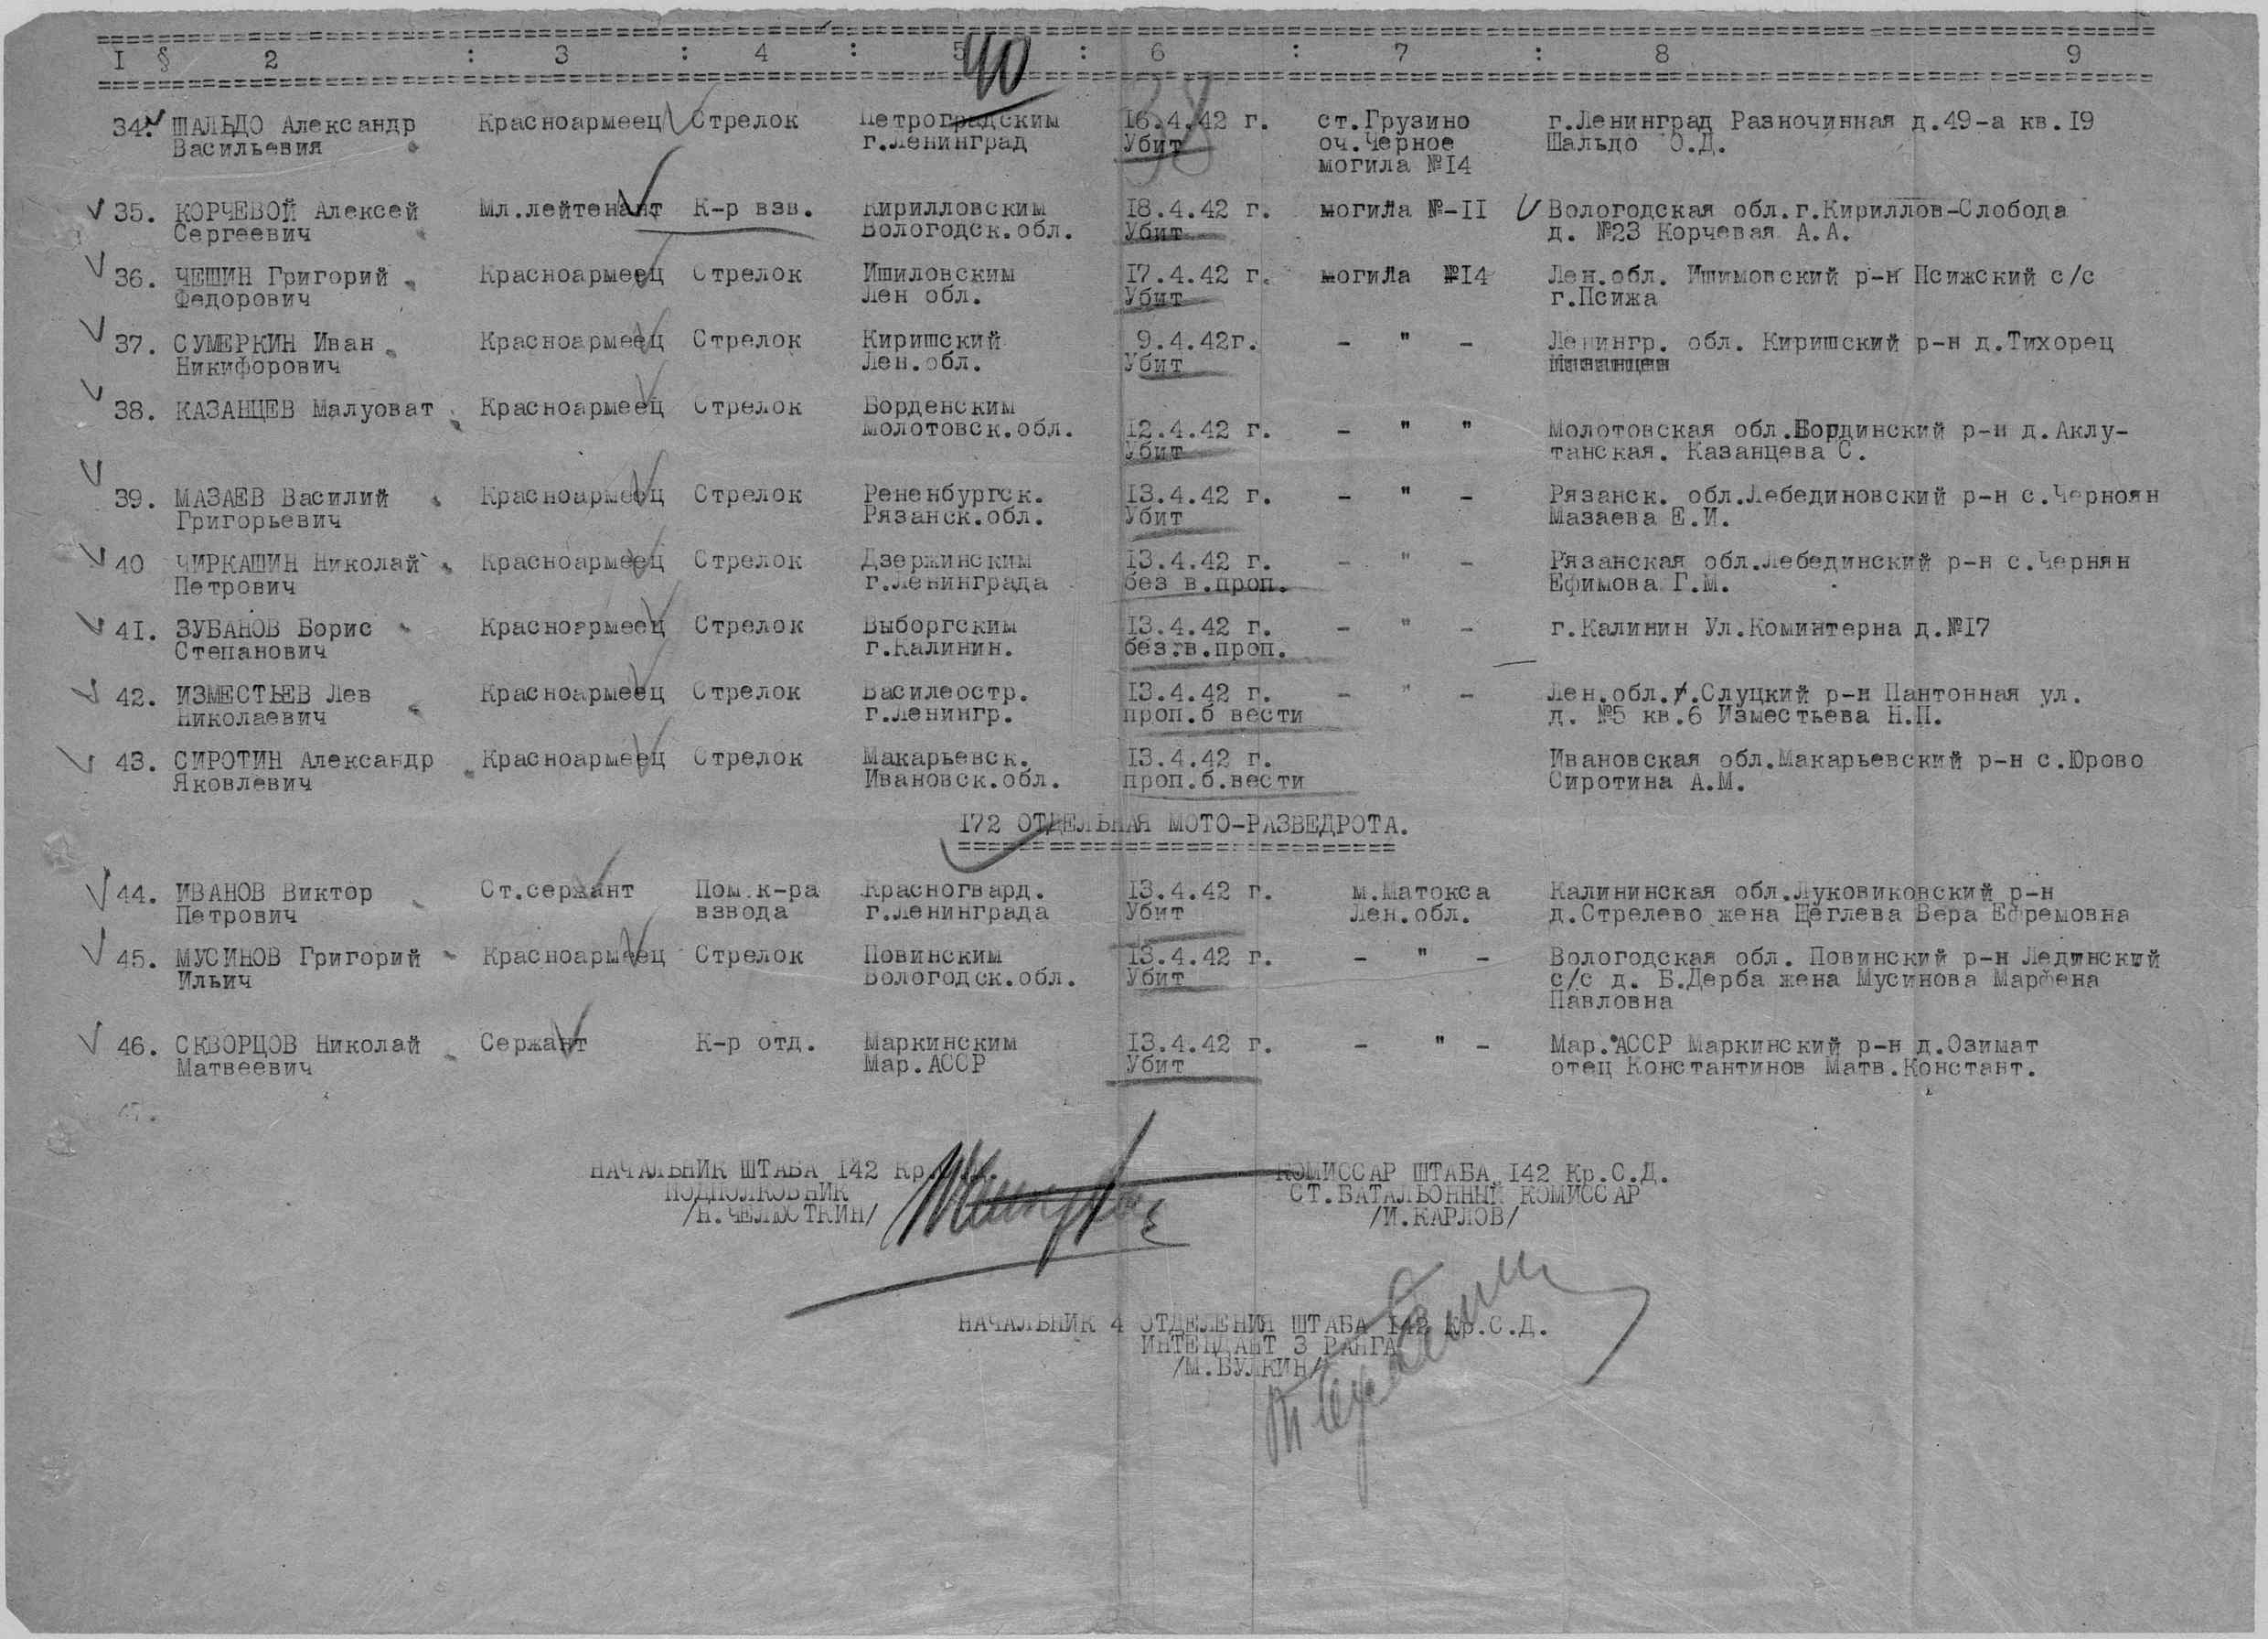 I § 2 : 3 : 4 : 5 : 6 : 7 : 8 9
40
38
34. ШАЛЬДО Александр Красноармеец Стрелок Петроградским 16.4.42 г. ст.Грузино г.Ленинград Разночинная д.49-а кв.19
Васильевия г.Ленинград Убит оч.Черное Шальдо О.Д.
могила №14
35. КОРЧЕВОЙ Алексей Мл.лейтенант К-р взв. Кирилловским 18.4.42 г. могила №-11 Вологодская обл.г.Кириллов-Слобода
Сергеевич Вологодск.обл. Убит д. №23 Корчевая А.А.
36. ЧЕШИН Григорий Красноармеец Стрелок Ишиловским 17.4.42 г. могила №14 Лен.обл. Ишимовский р-н Псижский с/с
Федорович Лен обл. Убит г.Псижа
37. СУМЕРКИН Иван Красноармеец Стрелок Киришский 9.4.42г. - " - Ленингр. обл. Киришский р-н д.Тихорец
Никифорович Лен.обл. Убит
38. КАЗАНЦЕВ Малуоват Красноармеец Стрелок Борденским
Молотовск.обл. 12.4.42 г. - " " Молотовская обл.Бордински й р-н д.Аклу-
Убит танская. Казанцева С.
39. МАЗАЕВ Василий Красноармеец Стрелок Рененбургск. 13.4.42 г. - " - Рязанск. обл.Лебединовский р-н с.Черноян
Григорьевич Рязанск.обл. Убит Мазаева Е.И.
40 ЧИРКАШИН Николай Красноармеец Стрелок Дзержинским 13.4.42 г. - " - Рязанская обл.Лебединский р-н с.Чернян
Петрович г.Ленинграда без в.проп. Ефимова Г.М.
41. ЗУБАНОВ Борис Красноармеец Стрелок Выборгским 13.4.42 г. - " - г.Калинин Ул.Коминтерна д.№17
Степанович г.Калинин. без.в.проп.
42. ИЗМЕСТЬЕВ Лев Красноармеец Стрелок Василеостр. 13.4.42 г. - " - Лен.обл.г.Слуцкий р-н Пантонная ул.
Николаевич г.Ленингр. проп.б вести д. №5 кв.6 Изместьева Н.П.
43. СИРОТИН Александр Красноармеец Стрелок Макарьевск. 13.4.42 г. Ивановская обл.Макарьевский р-н с.Юрово
Яковлевич Ивановск.обл. проп.б.вести Сиротина А.М.
172 ОТДЕЛЬНАЯ МОТО-РАЗВЕДРОТА.
44. ИВАНОВ Виктор Ст.сержант Пом.к-ра Красногвард. 13.4.42 г. м.Матокса Калининская обл.Луковиковский р-н
Петрович взвода г.Ленинграда Убит Лен.обл. д.Стрелево жена Щеглева Вера Ефремовна
45. МУСИНОВ Григорий Красноармеец Стрелок Повинским 13.4.42 г. - " - Вологодская обл. Повинский р-н Лединский
Ильич Вологодск.обл. Убит с/с д. Б.Дерба жена Мусинова Марфена
Павловна
46. СКВОРЦОВ Николай Сержант К-р отд. Маркинским 13.4.42 г. - " - Мар. АССР Маркинский р-н д.Озимат
Матвеевич Мар.АССР Убит отец Константинов Матв.Констант.
47.
НАЧАЛЬНИК ШТАБА 142 Кр. КОМИССАР ШТАБА 142 Кр.С.Д.
ПОДПОЛКОВНИК СТ.БАТАЛЬОННЫЙ КОМИССАР
/Н.ЧЕЛЮСТКИН/ /И.КАРЛОВ/
НАЧАЛЬНИК 4 ОТДЕЛЕНИЯ ШТАБА 142 Кр.С.Д.
ИНТЕНДАНТ 3 РАНГА
/М.БУЛКИН/